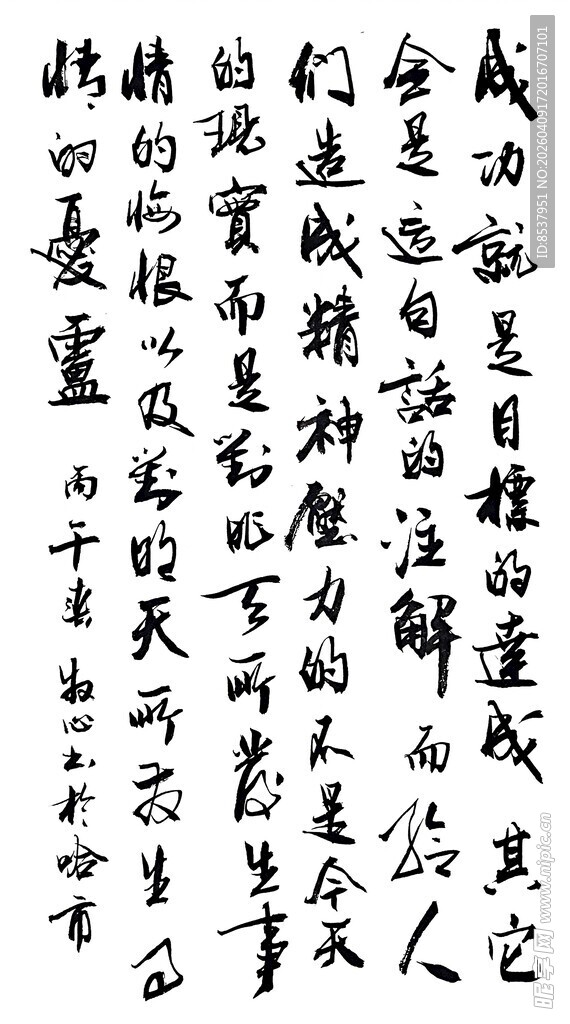 成功就是目標的達成其它
全是這句話的注解而给人
們造成精神壓力的不是今天
的現實而是對昨天所發生事
情的悔恨以及對明天所發生事
情的憂慮
丙午春 牧心书於哈市
ID:8537951 NO:20260409172016707101
昵享网 www.nipic.cn